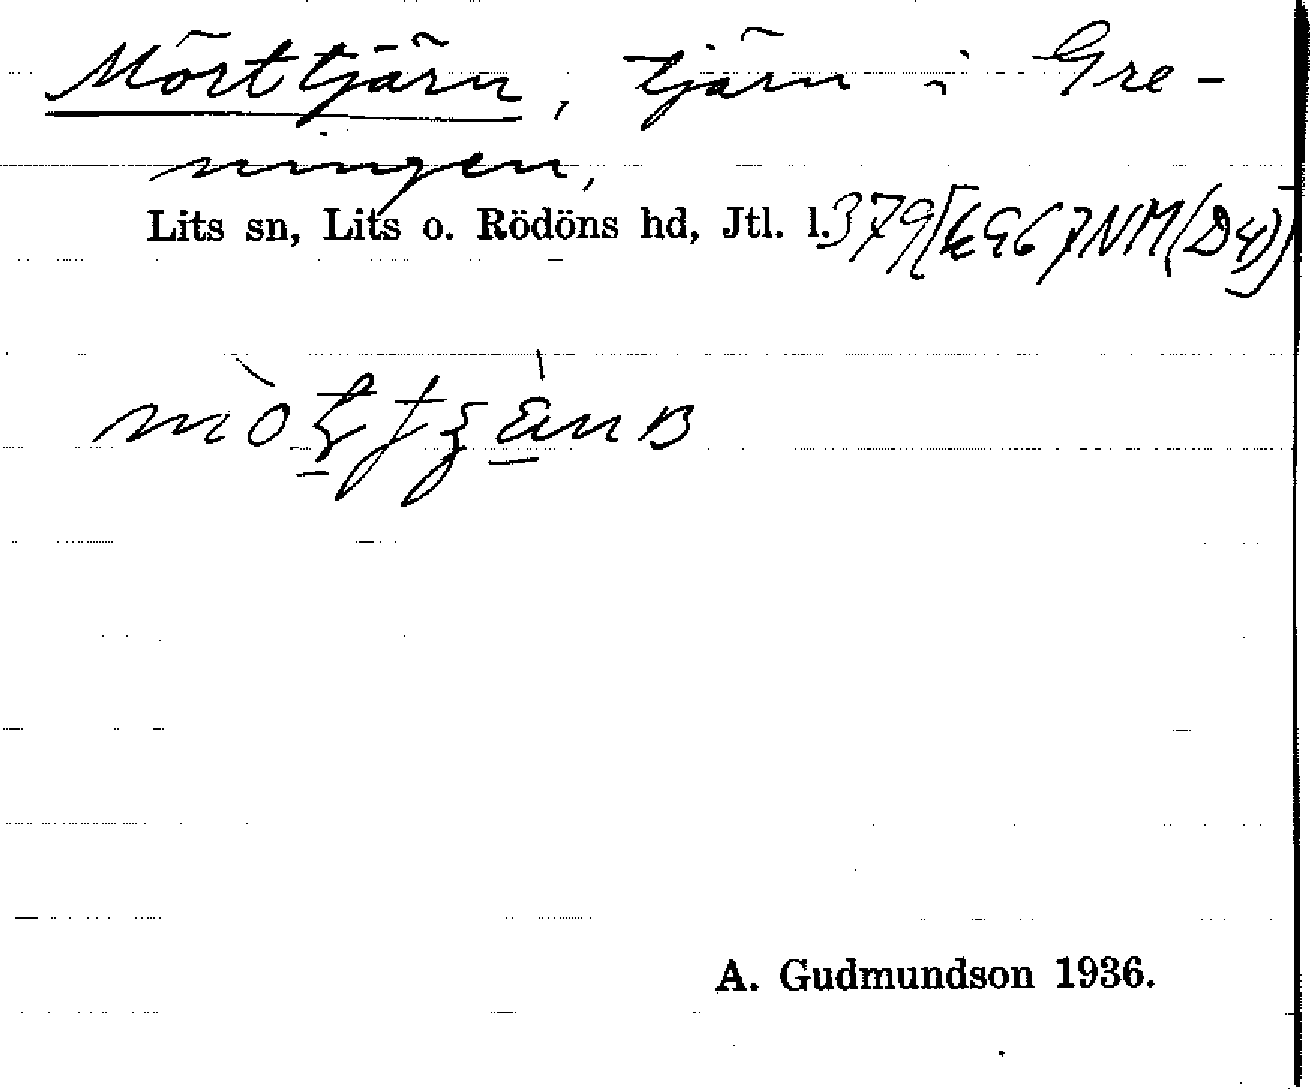 Mörttjärn, tjärn i Gre-
ningen,
Lits sn, Lits o. Rödöns hd, Jtl. l. 379
A. Gudmundson 1936.